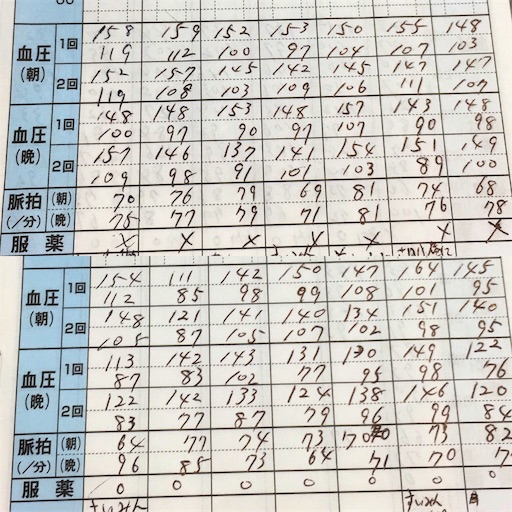 158 159 152 153 150 155 148
血圧(朝) 1回 119 112 100 97 104 107 103
152 157 145 142 145 147 147
2回 119 108 103 109 106 111 107
148 148 153 148 157 143 148
血圧(晩) 1回 100 97 90 97 107 90 98
157 146 137 141 154 151 149
2回 109 98 91 101 103 89 100
脈拍(/分) (朝) 70 76 79 69 81 74 68
(晩) 75 77 79 71 81 76 78
服薬 × × × × × × ×
154 111 142 150 147 164 145
血圧(朝) 1回 112 85 98 99 108 101 95
148 121 141 140 134 151 140
2回 105 87 105 107 102 98 95
113 142 143 131 130 149 122
血圧(晩) 1回 87 83 102 77 95 98 76
122 142 133 124 138 146 120
2回 83 77 87 79 96 99 84
脈拍(/分) (朝) 64 77 74 73 70 73 82
(晩) 96 85 73 64 71 70
服薬 0 0 0 0 0 0 0